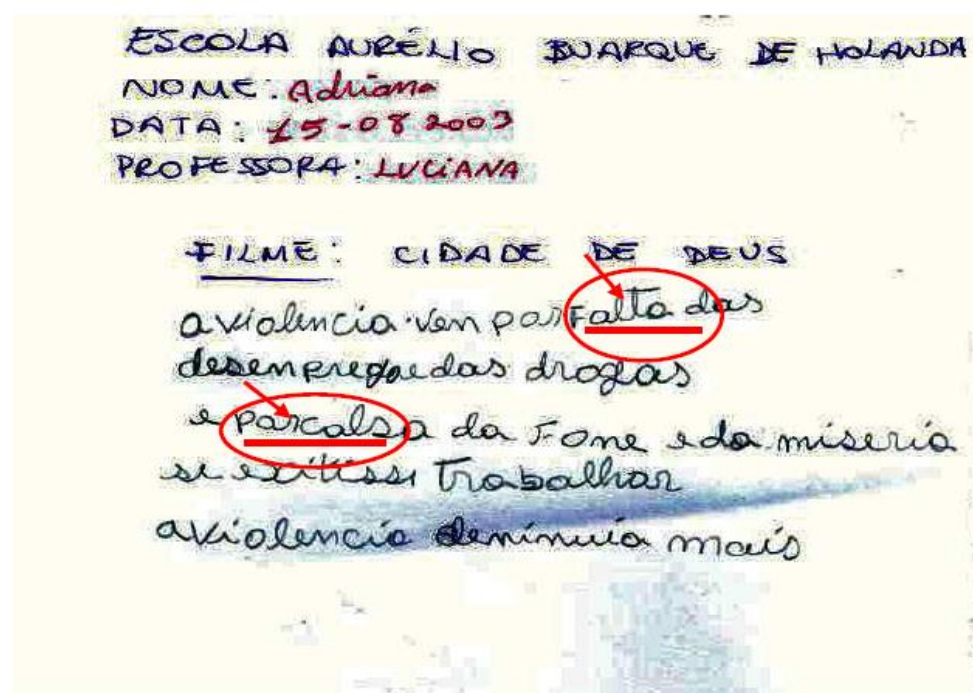 ESCOLA AURÉLIO BUARQUE DE HOLANDA
NOME: Adriana
DATA: 15-08 2003
PROFESSORA: LUCIANA
FILME: CIDADE DE DEUS
a violencia ven por falta das
desenpregoe das drogas
e porcalsa da Fome e da miseria
si exitissi Trabalhar
aviolencia deminuia mais